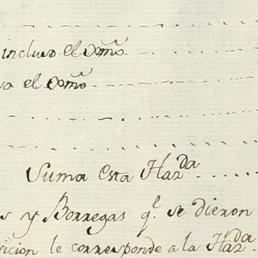 incluso el xmõ
so el xmõ
Suma esta Hazda
s y Borregas q.e se dieron
sicion le corresponde a la Hazda